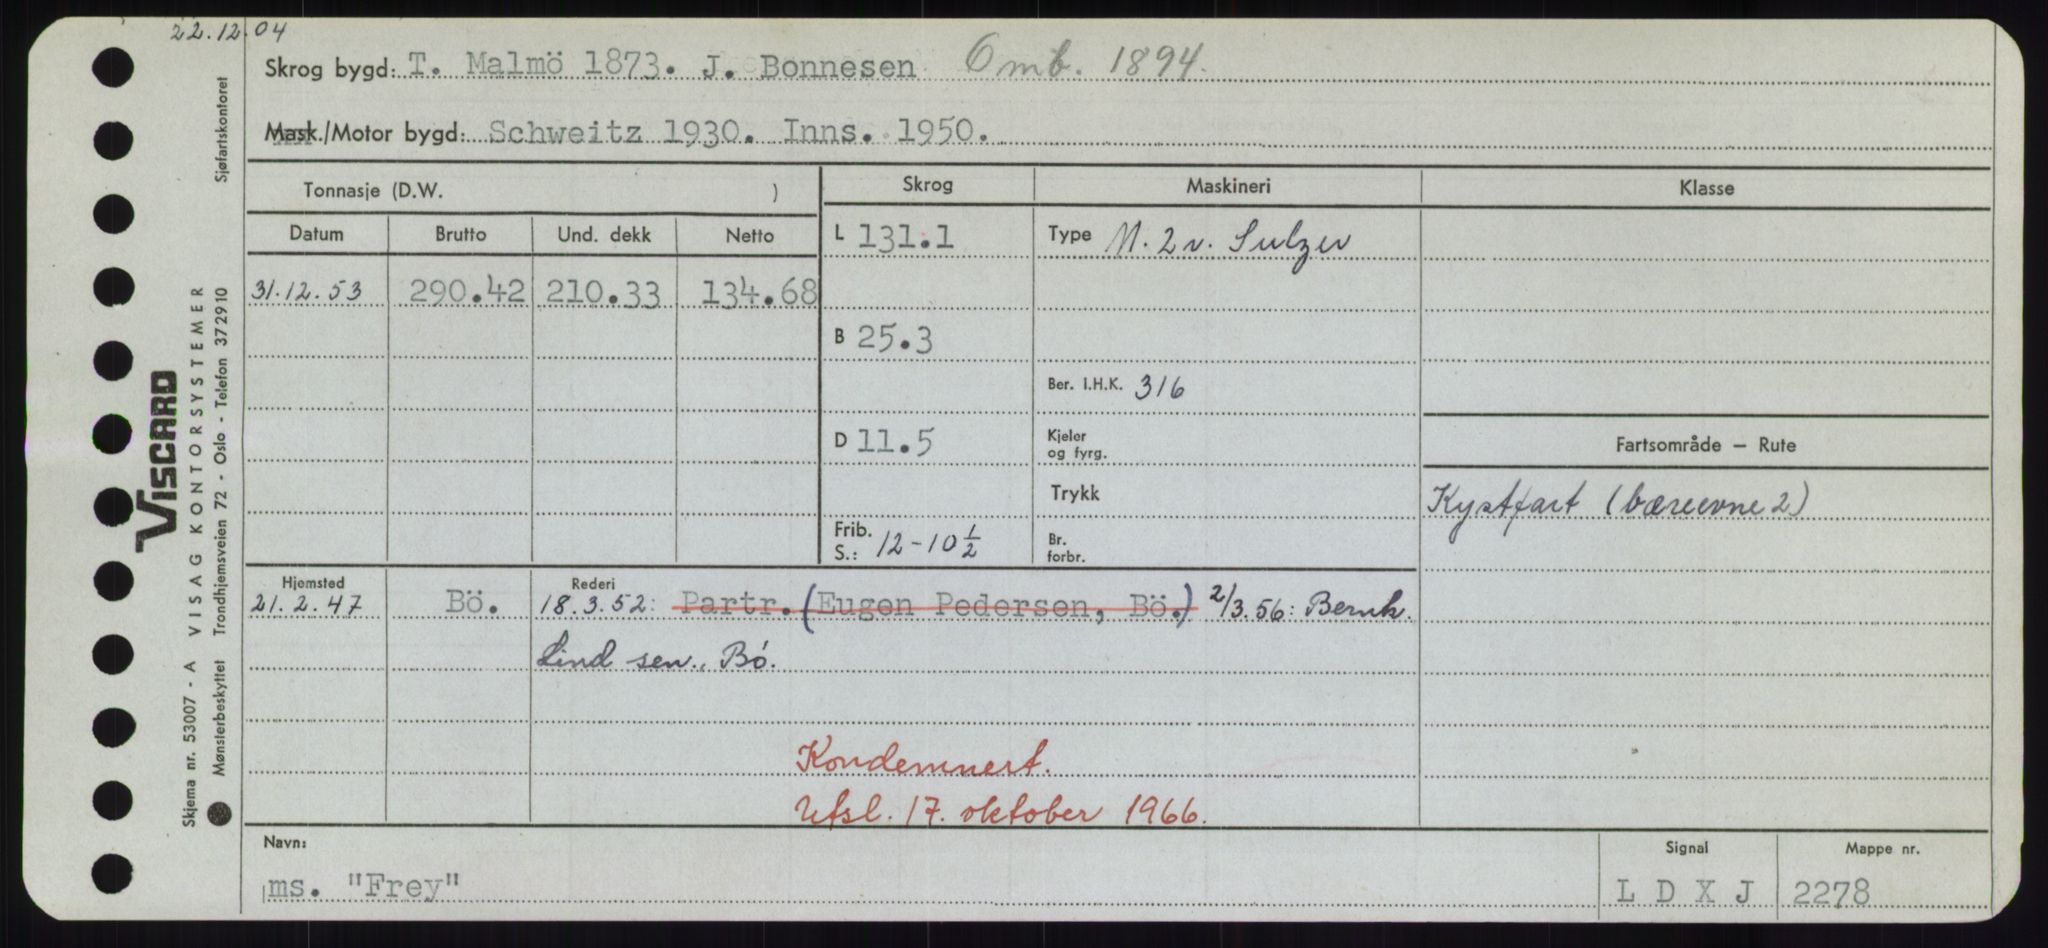 22.12.04
Skrog bygd: T. Malmö 1873. J. Bonnesen Omb. 1894.
Mask./Motor bygd: Schweitz 1930. Inns. 1950.
Tonnasje (D.W. )
Skrog
Maskineri
Klasse
Datum Brutto Und. dekk Netto
L 131.1
Type M. 2v. Sulzer
31.12.53 290.42 210.33 134.68
B 25.3
Ber. I.H.K. 316
D 11.5
Kjeler
og fyrg.
Fartsområde – Rute
Trykk
Kystfart (bæreevne 2)
Frib.
S.: 12-10 ½
Br.
forbr.
Hjemsted
Rederi
21.2.47 Bö. 18.3.52: Partr. (Eugen Pedersen, Bö.) 2/3.56: Bernh.
Lind sen., Bö.
Kondemnert.
Utsl. 17. oktober 1966.
Navn:
Signal
Mappe nr.
ms. "Frey"
L D X J
2278
VISCARD
Skjema nr. 53007 - A VISAG KONTORSYSTEMER
Mønsterbeskyttet Trondhjemsveien 72 - Oslo - Telefon 37 29 10 Sjøfartskontoret